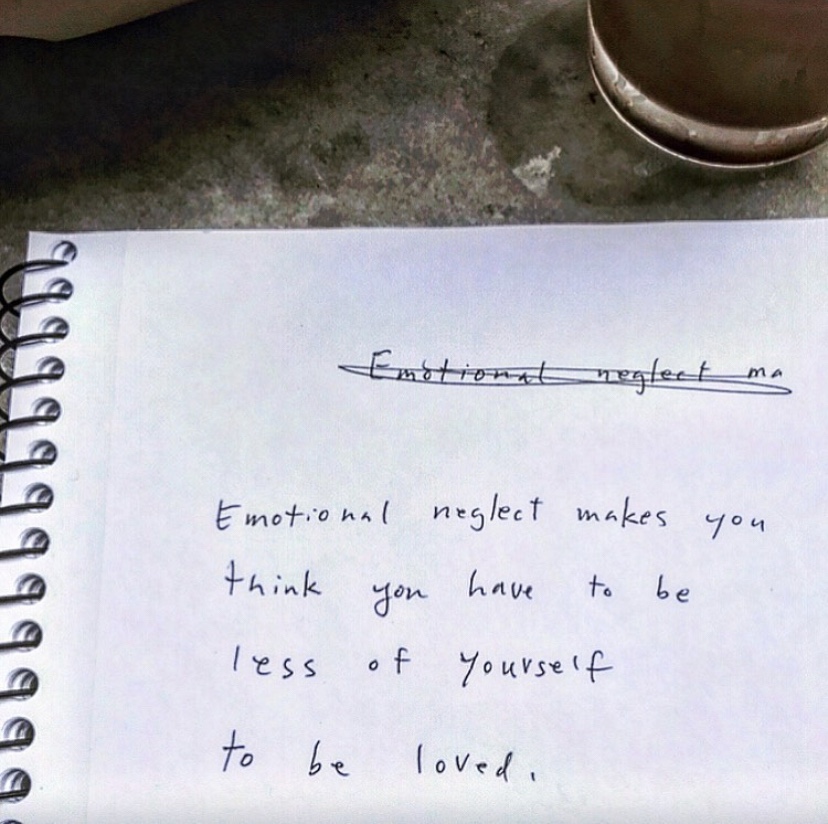 Emotional neglect ma
Emotional neglect makes you
think you have to be
less of yourself
to be loved.